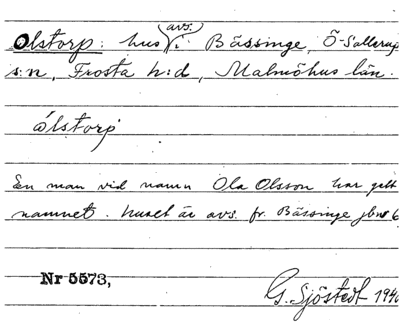 avs.
Olstorp: hus i Bässinge, Ö-Sallerup
s:n, Frosta h:d, Malmöhus län.
ólstorp
En man vid namn Ola Olsson har gett
namnet. huset är avs. fr. Bässinge jbnr 6
Nr 5573,
G. Sjöstedt 1940